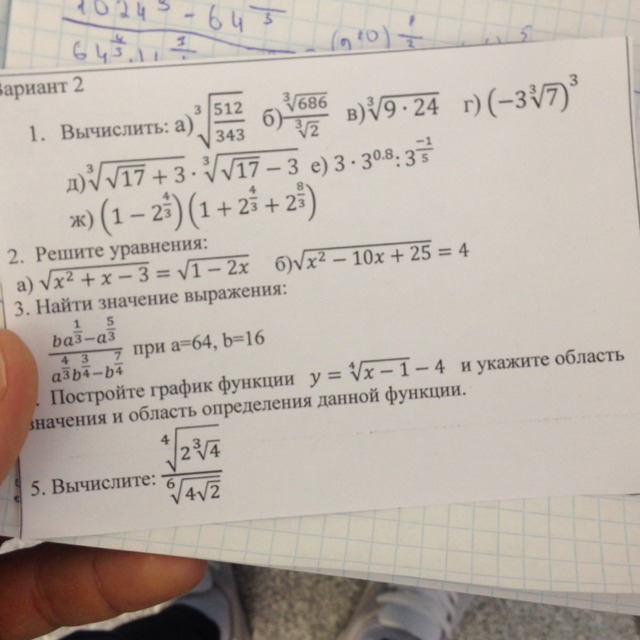 1024⁵ - 64
Вариант 2
1. Вычислить: а) ³√(512/343) б) ³√686/³√2 в) ³√(9·24) г) (−3³√7)³
д) ³√(√17+3) · ³√(√17−3) е) 3·3^0.8 : 3^(−1/5)
ж) (1−2^(4/3))(1+2^(4/3)+2^(8/3))
2. Решите уравнения:
а) √(x²+x−3) = √(1−2x) б) √(x²−10x+25) = 4
3. Найти значение выражения:
(ba^(1/3)−a^(5/3))/(a^(4/3)b^(3/4)−b^(7/4)) при a=64, b=16
. Постройте график функции y = ⁴√(x−1) − 4 и укажите область
значения и область определения данной функции.
5. Вычислите: ⁴√(2³√4)/⁶√(4√2)